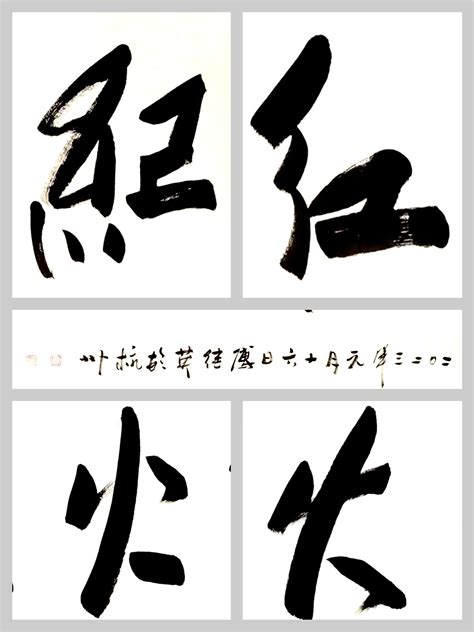 红紅
二〇二三年元月十六日傅继英於杭州
火火